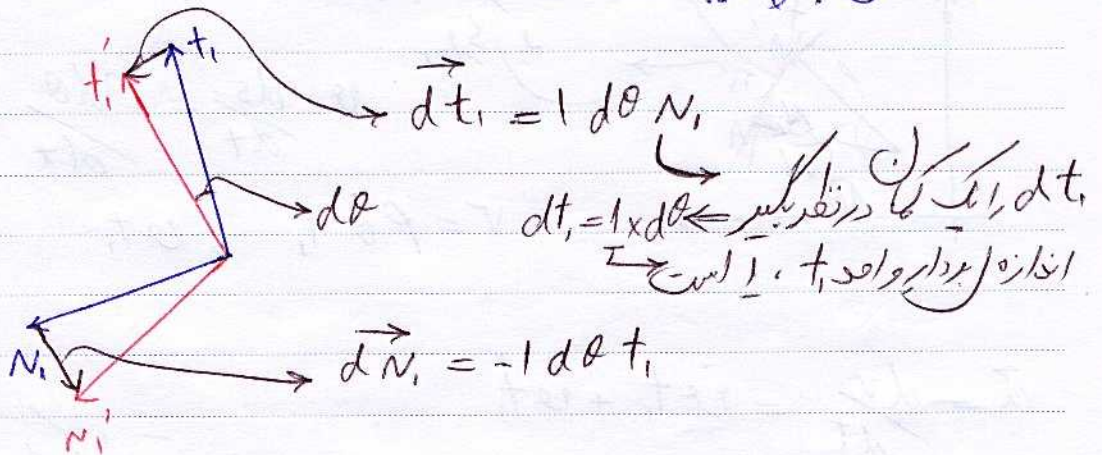 t₁' t₁
dt₁ = 1 dθ N₁
dθ
dt₁ را یک کمان در نظر بگیر ⇐ dt₁ = 1 × dθ
اندازه بردار واحد t₁، 1 است
N₁
dN₁ = -1 dθ t₁
N₁'